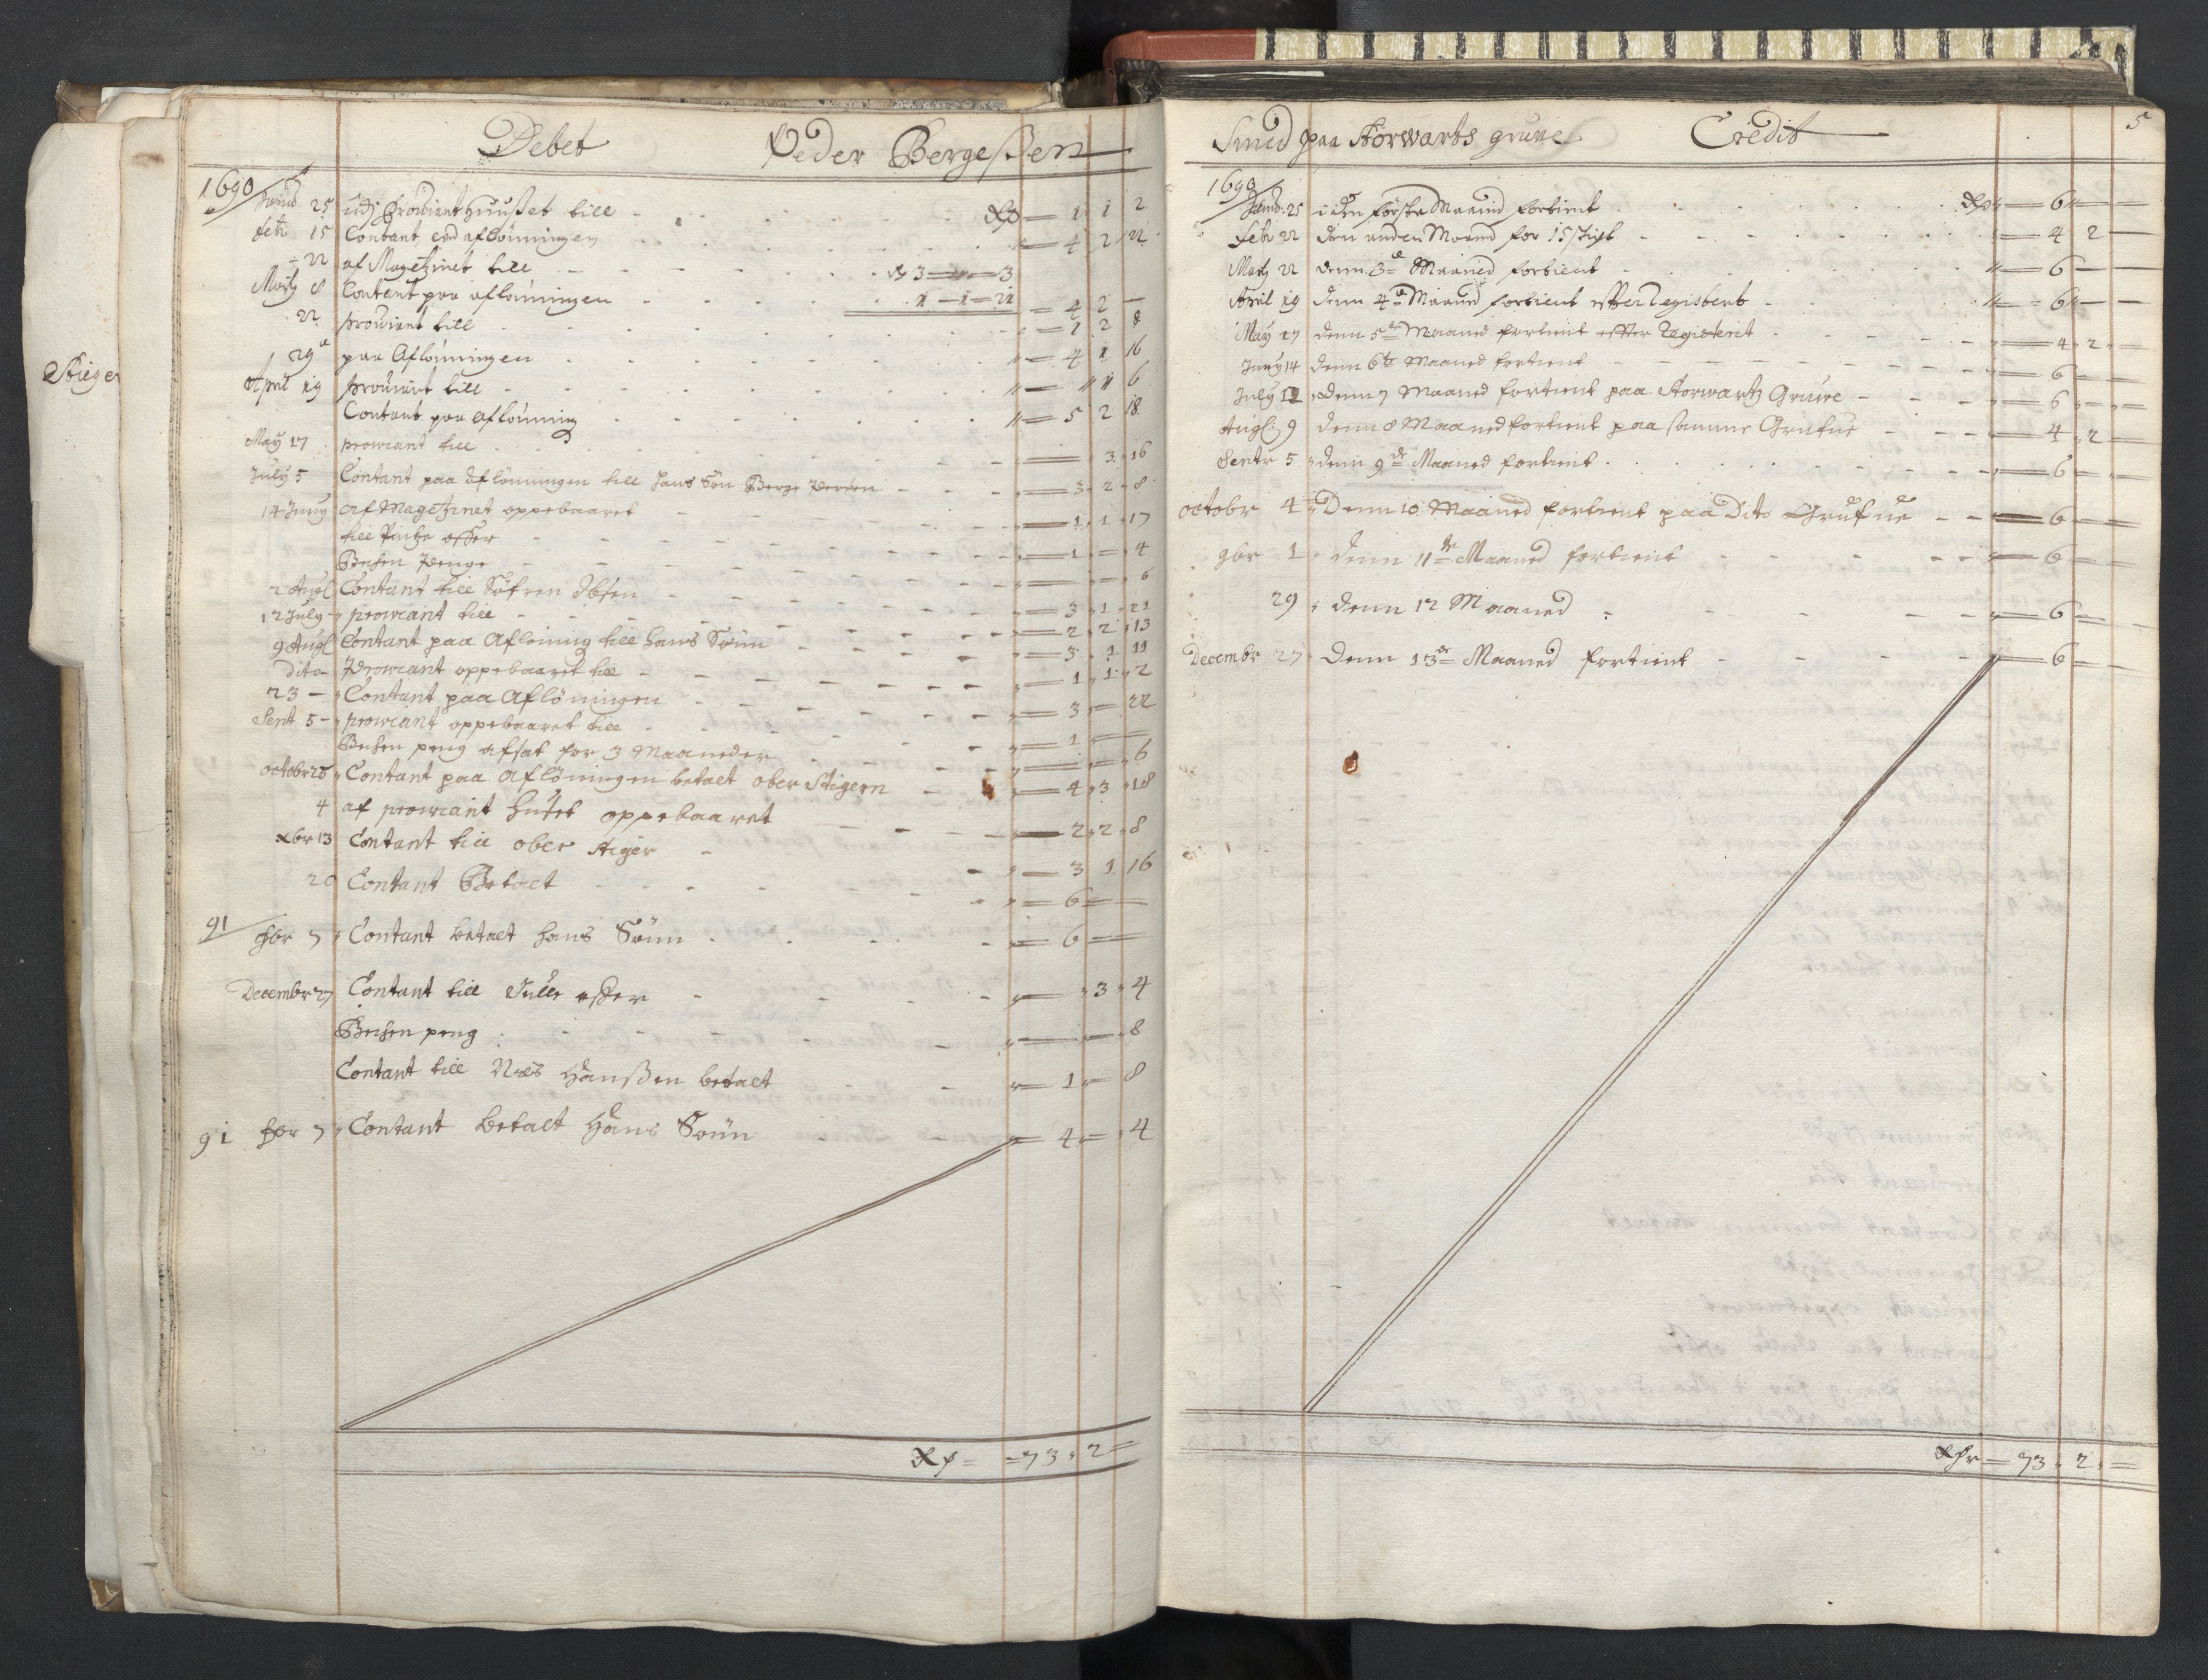 Stiger
Debet Peder Bergeßen
1690
Janu 25 udj Proviant Huußet till Rdr 1 1 2
Feb 15 Contant ved aflønningen 4 2 22
22 af Magetzinet till 3 3
Marty 8 Contant paa aflønningen 1 1 21 4 2
22 proviant till 1 2 8
29 paa Aflønningen 4 1 16
April 19 proviant till 1 6
Contant paa aflønning 5 2 18
May 17 prowiant till 3 16
July 5 Contant paa aflønningen till hans Søn Berge Persen 3 2 8
14 Juny af Magetzinet oppebaaret 1 1 17
till offer 1 4
Bøhsen Penge 6
2 Augl Contant till Søfren Ibsen 3 1 21
12 July prowiant till 2 2 13
9 Augl Contant paa Afløning till hans Sønn 3 1 11
dito Prowiant oppebaaret till 1 1 2
23 Contant paa Afløningen 3 22
Sept 5 prowiant oppebaaret till 1
Bøhsen peng afsat for 3 Maaneder 6
octobr 25 Contant paa afløningen betalt ober Stigern 4 3 18
4 af prowiant huset oppebaaret 2 2 8
xbr 13 Contant till ober Stiger 3 1 16
20 Contant Betalt 6
91 7 Contant betalt hans Sønn 6
Decembr 27 Contant till Julle offer 3 4
Bøhsen peng 8
Contant till Niels Hanßen betalt 1 8
91 7 Contant betalt Hans Sønn 4 4
Rdr 73 2
5
Smed paa Storwarts grune Credit
1690
Janu 25 i den første Maaned fortient Rdr 6
Febr 22 den anden Maaned for 15 4 2
Marty 22 denn 3de Maaned fortient 6
April 19 denn 4de Maaned fortient effter Registeret 6
May 17 denn 5te Maaned fortient effter Registeret 4 2
Juny 14 denn 6te Maaned fortient 6
July 12 denn 7 Maaned fortient paa Storwartz Gruwe 6
Augl 9 denn 8 Maaned fortient paa samme Grufue 4 2
Septr 5 denn 9de Maaned fortient 6
octobr 4 Denn 10 Maaned fortient paa Dito Grufue 6
9br 1 denn 11te Maaned fortient 6
29 denn 12 Maaned 6
Decembr 27 denn 13de Maaned fortient 6
Rdr 73 2